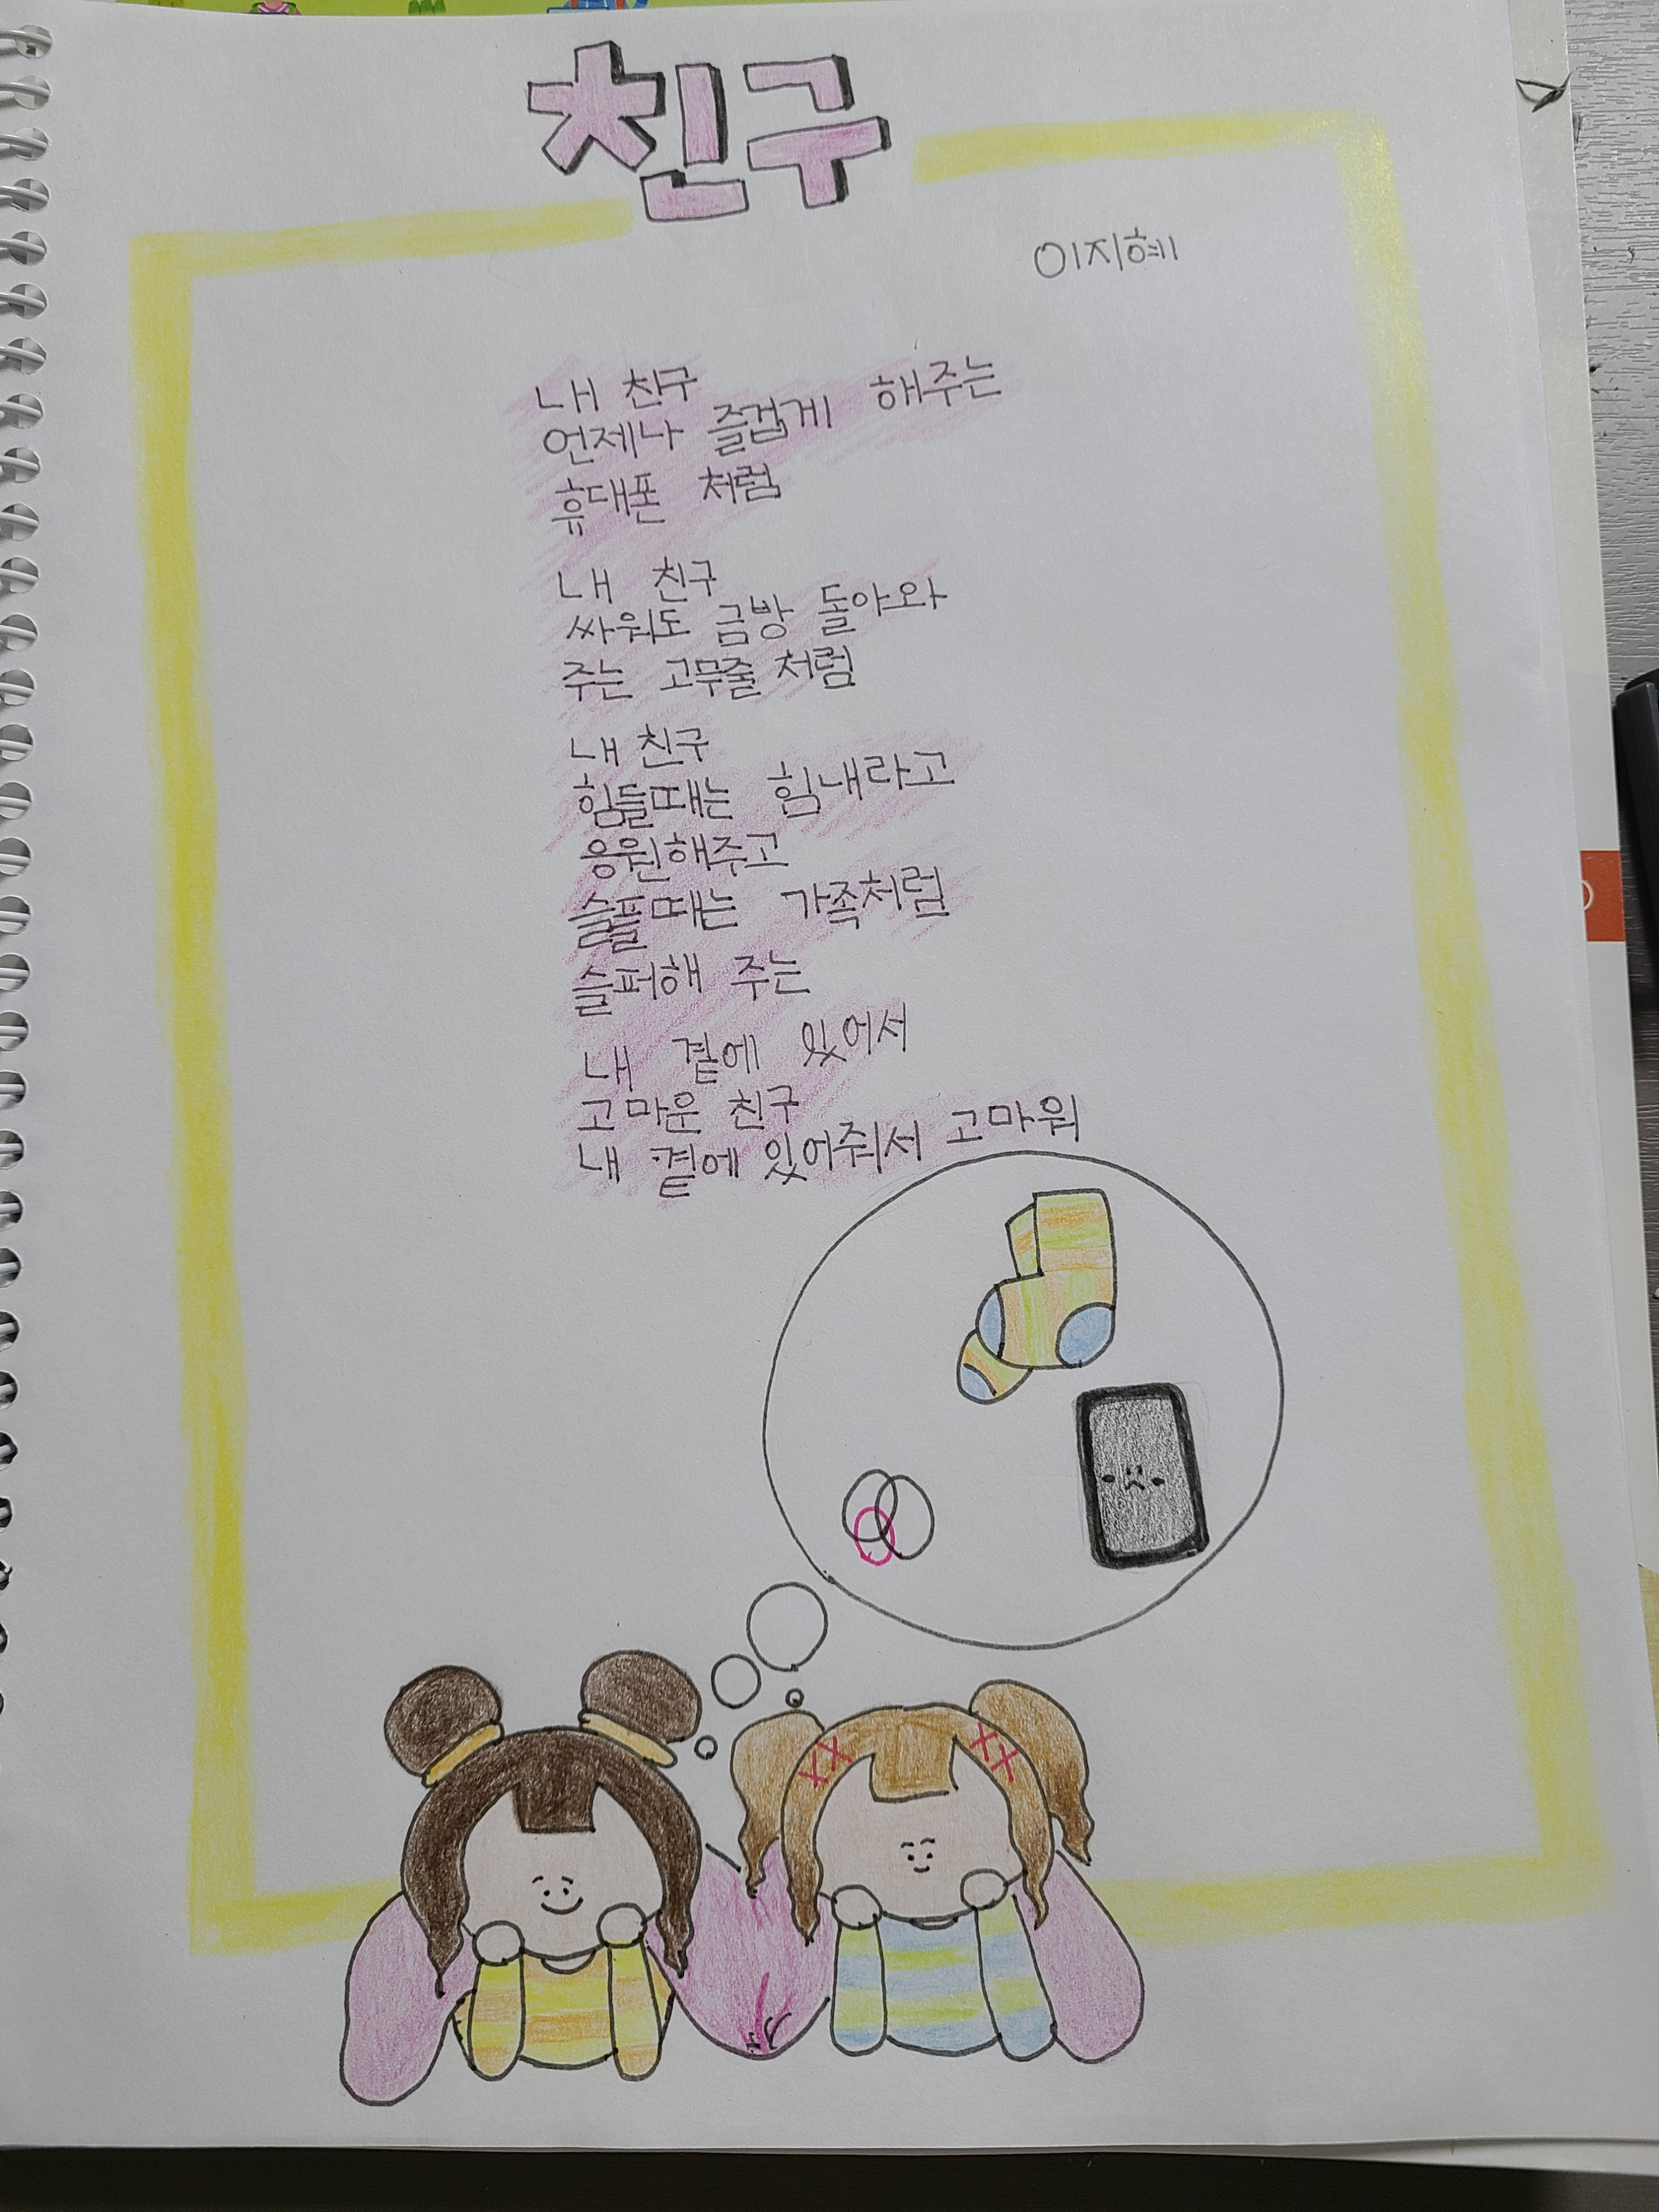 친구
이지혜
내 친구
언제나 즐겁게 해주는
휴대폰 처럼
내 친구
싸워도 금방 돌아와
주는 고무줄 처럼
내 친구
힘들때는 힘내라고
응원해주고
슬플때는 가족처럼
슬퍼해 주는
내 곁에 있어서
고마운 친구
내 곁에 있어줘서 고마워